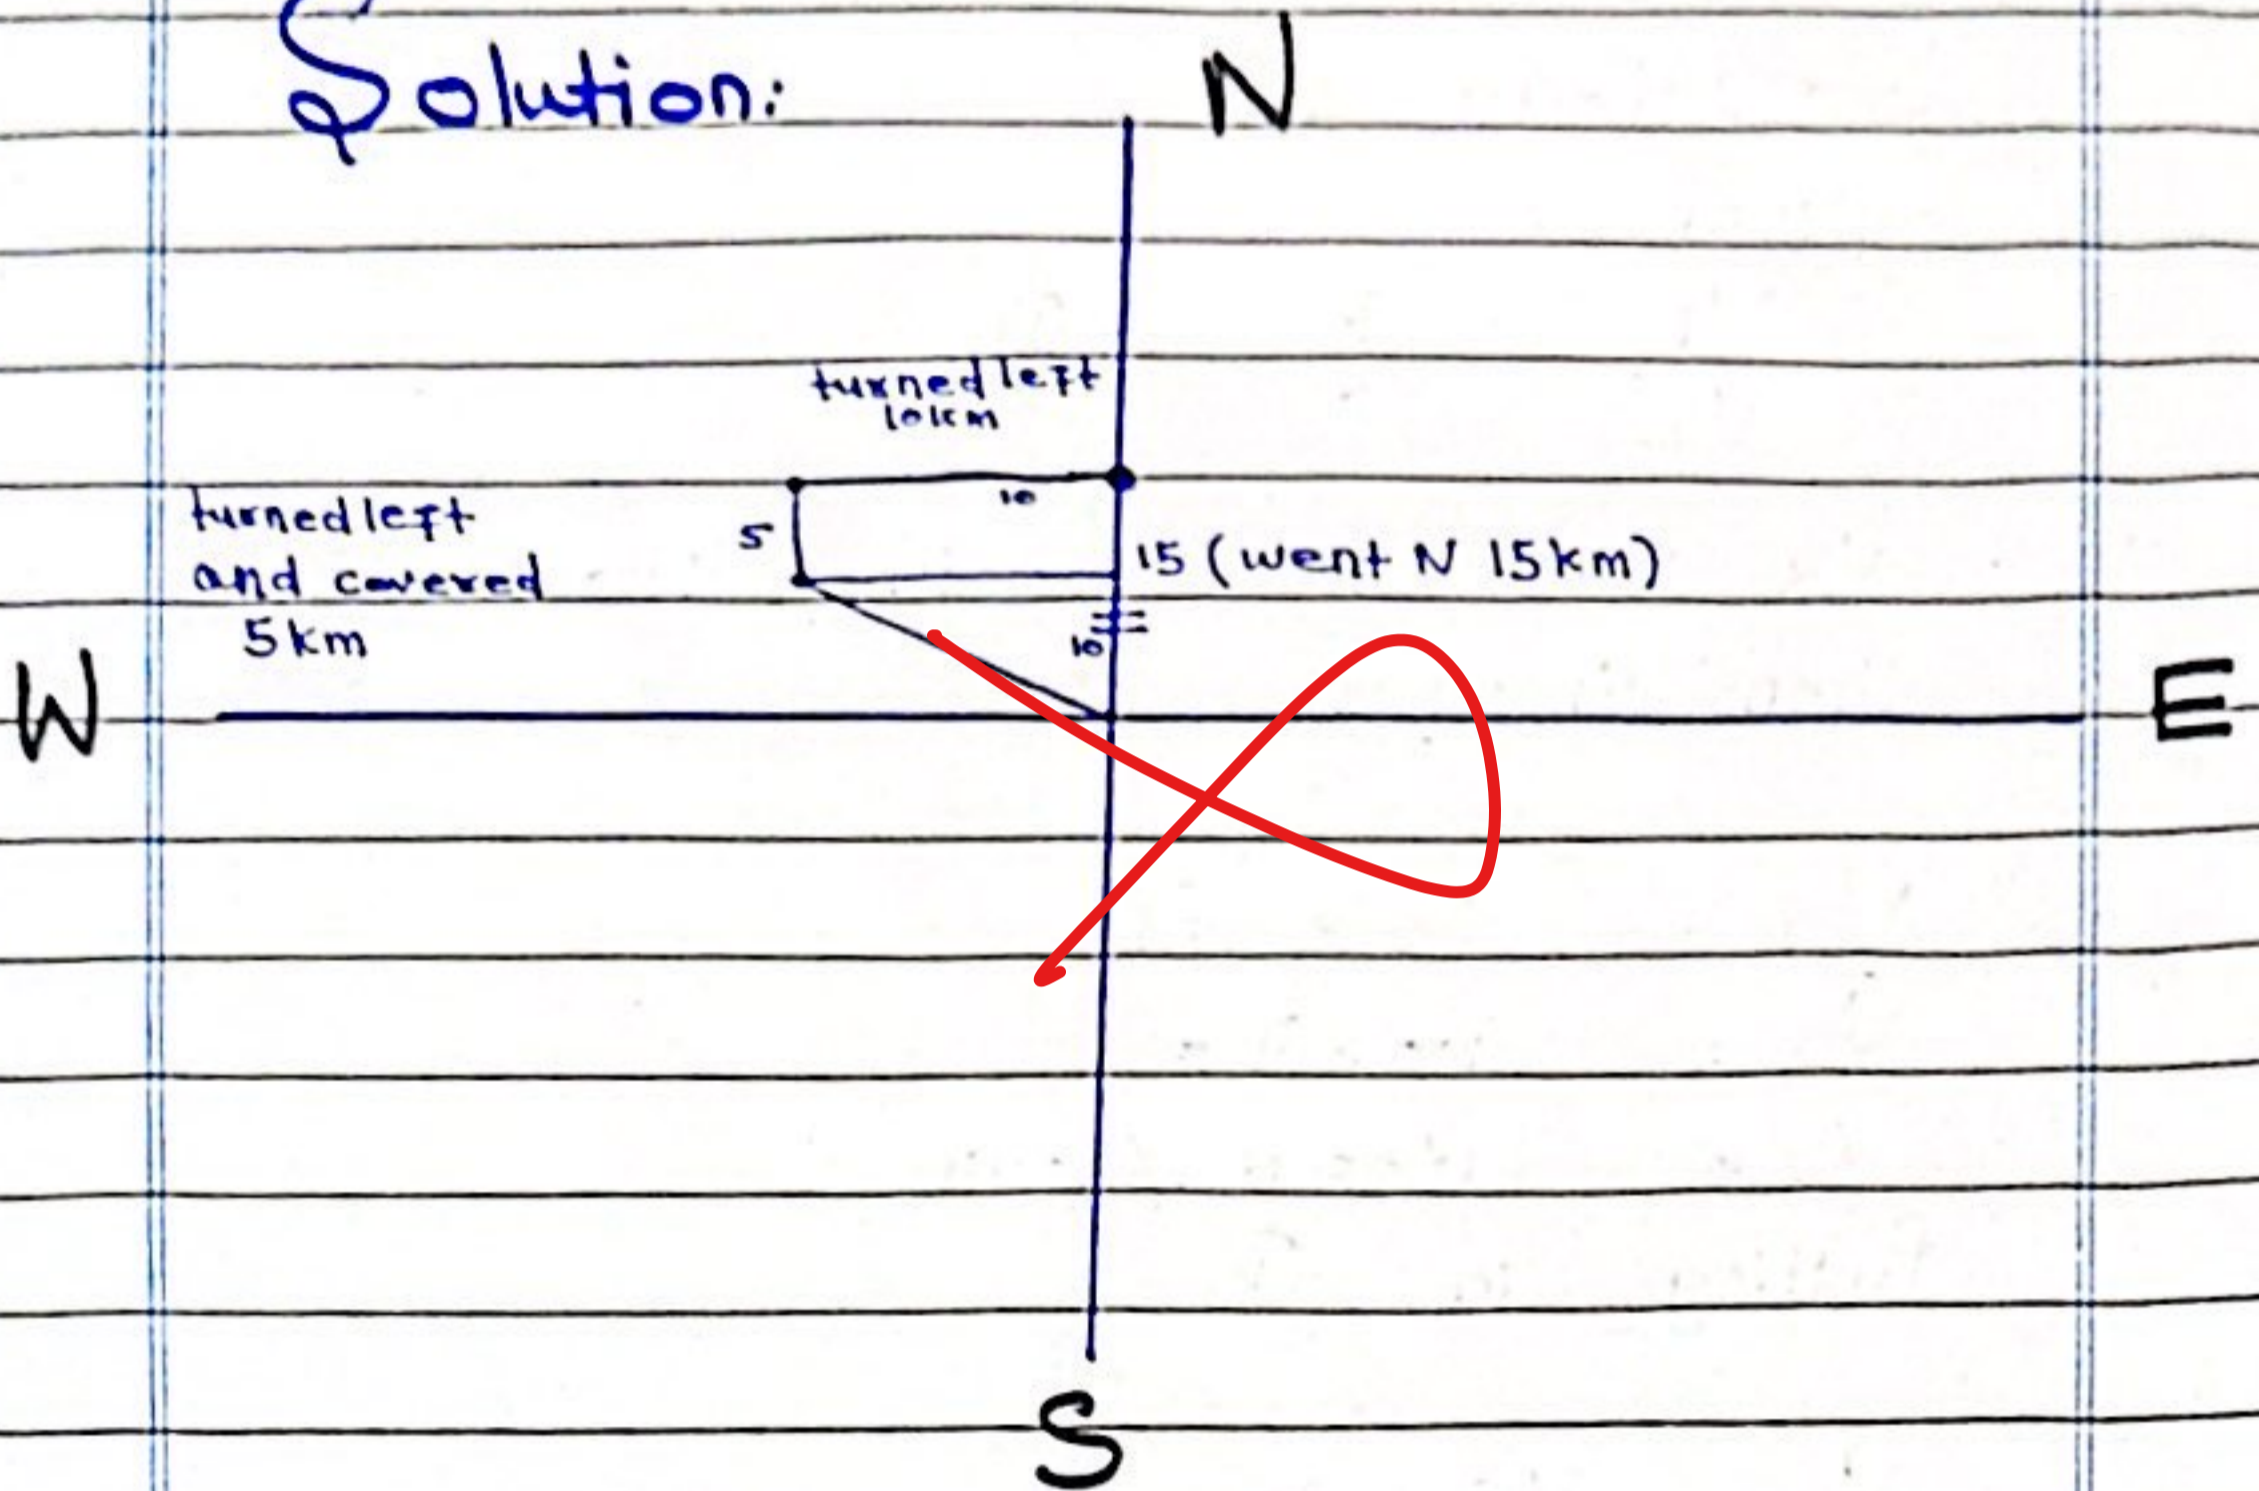 Solution:
N
turned left
10km
10
turned left
and covered
5km
5
15 (went N 15km)
10
W
E
S